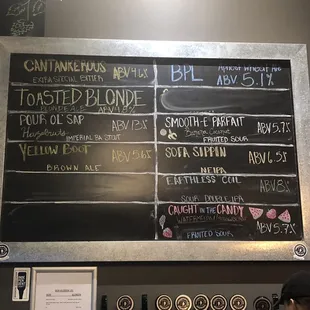 CANTANKEROUS ABV 4.6%
EXTRA SPECIAL BITTER
TOASTED BLONDE
BLONDE ALE ABV 4.8%
POUR OL' SAP ABV 13%
Hazelnuts
IMPERIAL BA STOUT
YELLOW BOOT ABV 5.6%
BROWN ALE
BPL
ABV 5.1%
SMOOTH-E PARFAIT ABV 5.7%
FRUITED SOUR
SOFA SIPPIN ABV 6.5%
NEIPA
EARTHLESS COIL ABV 8%
SOUR DOUBLE IPA
CAUGHT IN THE CANDY
WATERMELON
FRUITED SOUR ABV 5.7%